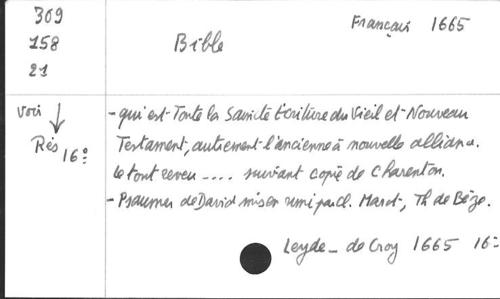 309
158
21
Bible
Français 1665
Voir
Rés 16º
- qui est Toute la Saincte Ecriture du Vieil et Nouveau
Testament, autrement l'ancienne à nouvelle alliance.
le tout reveu .... suivant copie de Charenton.
- Psaumes de David mis en rime par Cl. Marot, Th de Bèze.
Leyde - de Croy 1665 16º